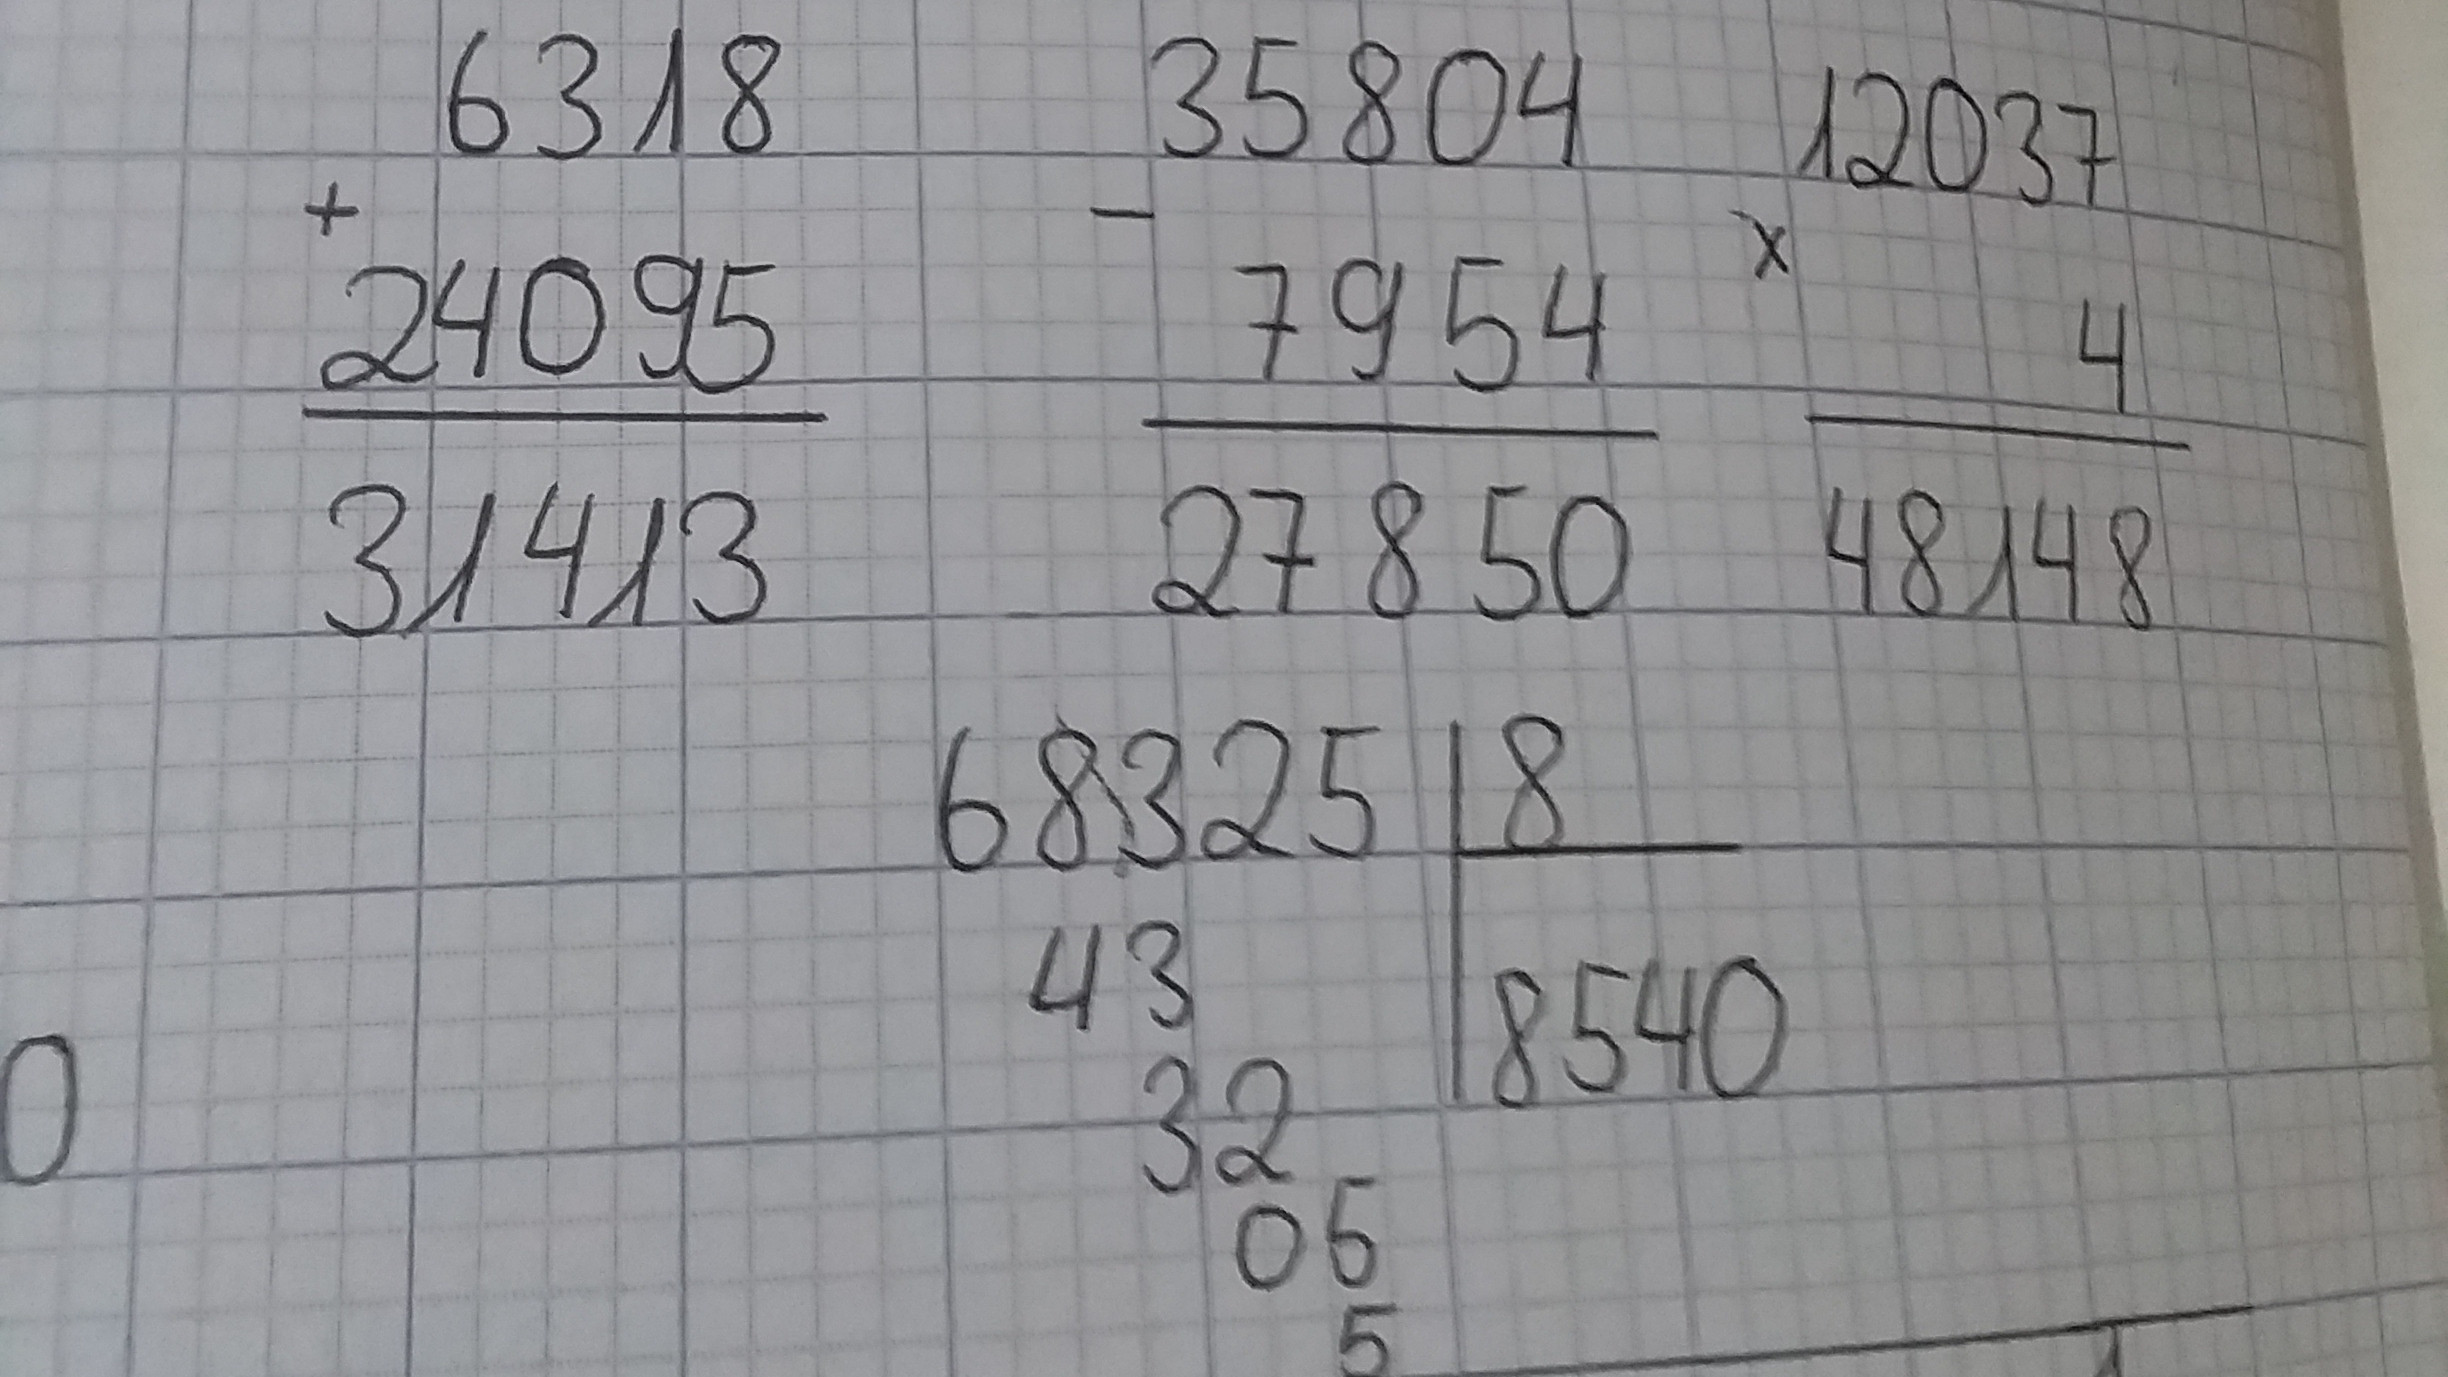 6318
+
24095
31413
35804
-
7954
27850
12037
x
4
48148
68325 8
43
8540
32
05
5
0